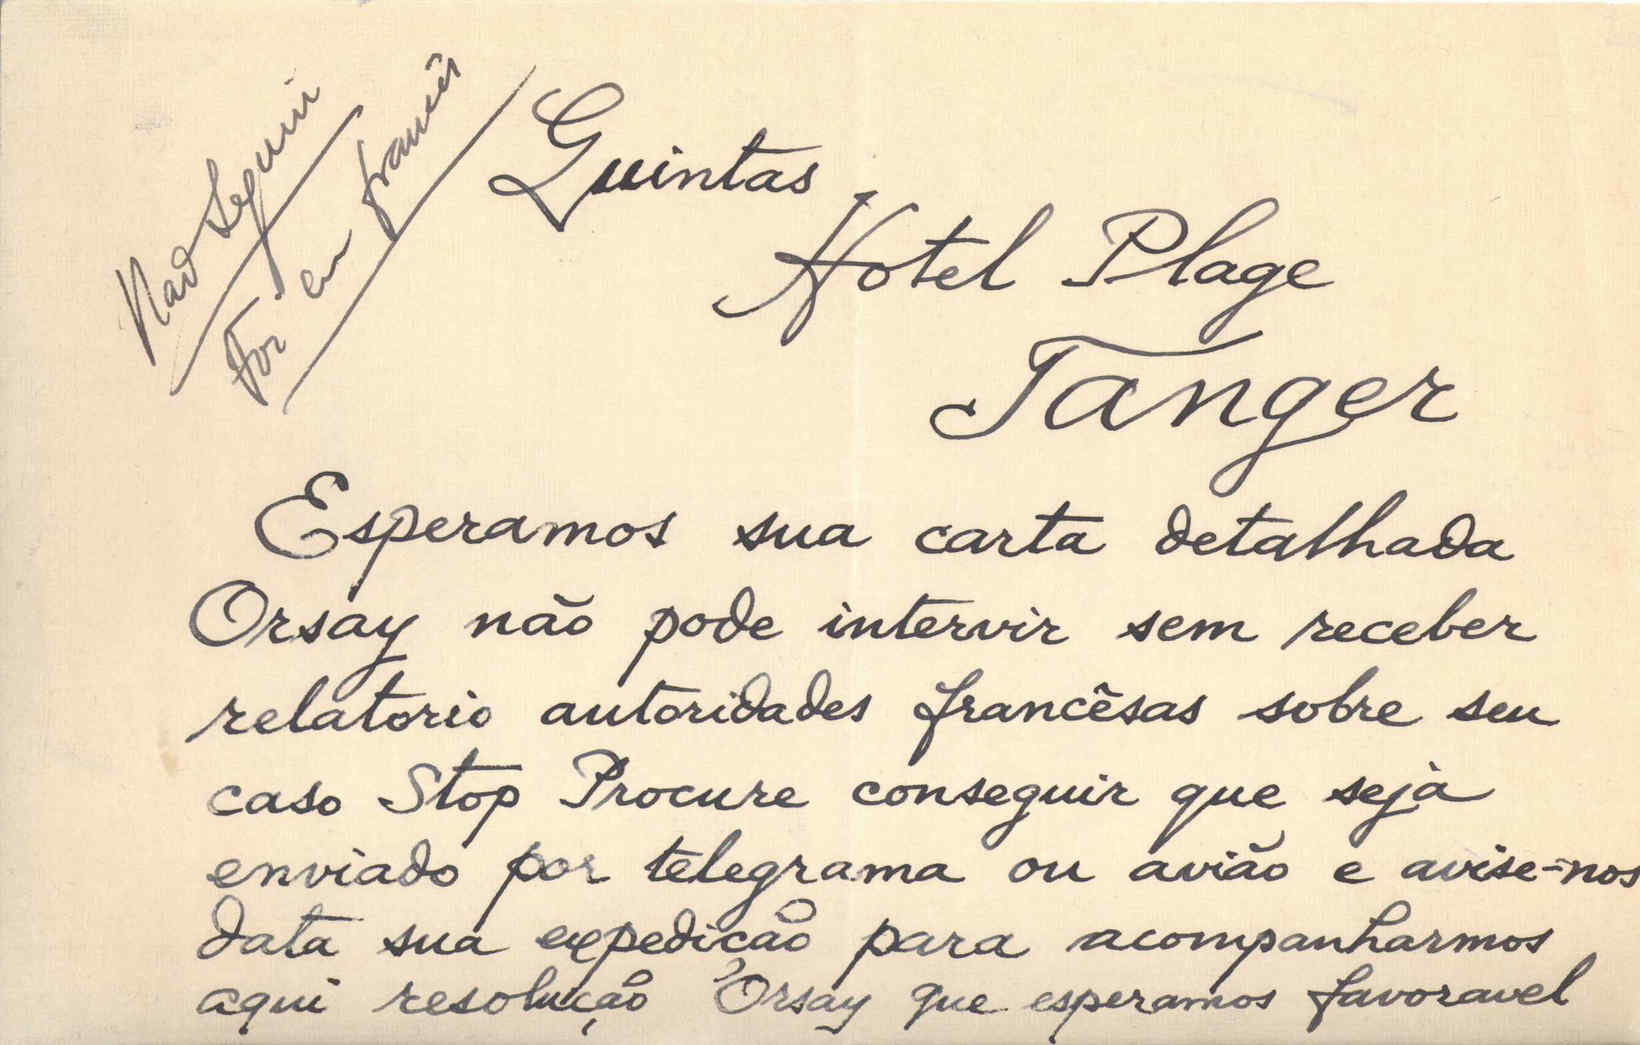 Nao Seguiu
Foi em francês
Quintas
Hotel Plage
Tanger
Esperamos sua carta detalhada
Orsay não pode intervir sem receber
relatorio autoridades francêsas sobre seu
caso Stop Procure conseguir que seja
enviado por telegrama ou avião e avise-nos
data sua expedicão para acompanharmos
aqui resolução Orsay que esperamos favoravel